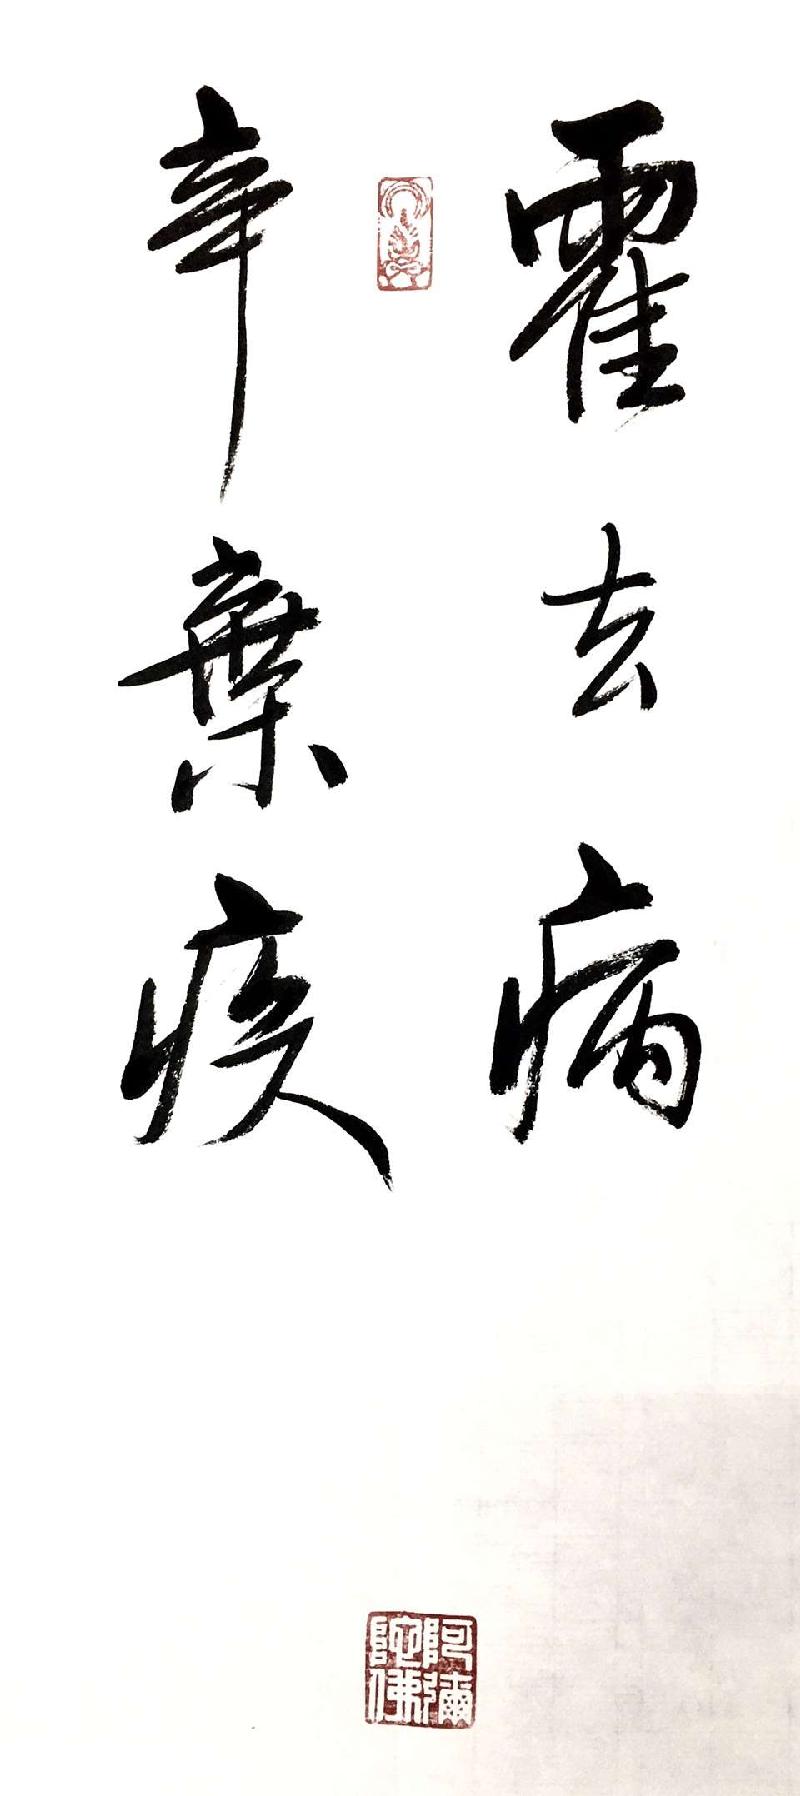 霍去病
辛棄疾
阿彌
陀佛